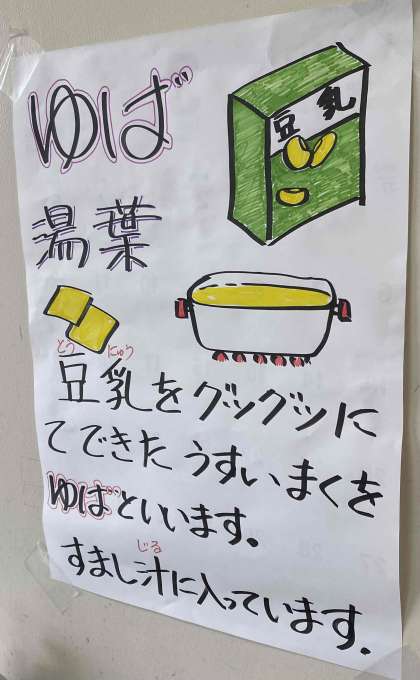 ゆば
豆乳
湯葉
とう にゅう
豆乳をグツグツに
てできたうすいまくを
ゆばといいます。
じる
すまし汁に入っています。